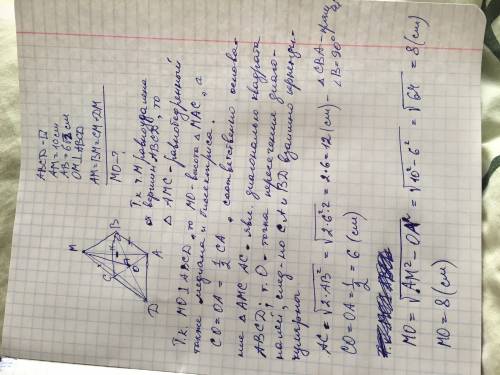 ABCD-□
AM=10см
AB=6√2 см
OM⊥ABCD
AM=BM=CM=DM
MO-?
M
B
C
O
A
D
Т.к. т.М равноудалена
от вершин ABCD, то
△ AMC - равнобедренный
Т.к. MO⊥ABCD, то MO - высота △ MAC, а
также медиана и биссектриса.
CO = OA = 1/2 CA, соответственно основа-
ние △ AMC AC = явл. диагональю квадрата
ABCD; т. O - точка пересечения диаго-
налей, след-но CA и BD взаимно перпенди-
кулярны
AC = √2·AB² = √2·6²·2 = 2·6 = 12 (см) - △ CBA - прям.
∠B=90°
CO = OA = 1/2 = 6 (см)
MO = √AM² - OA² = √10² - 6² = √64 = 8 (см)
MO = 8 (см)